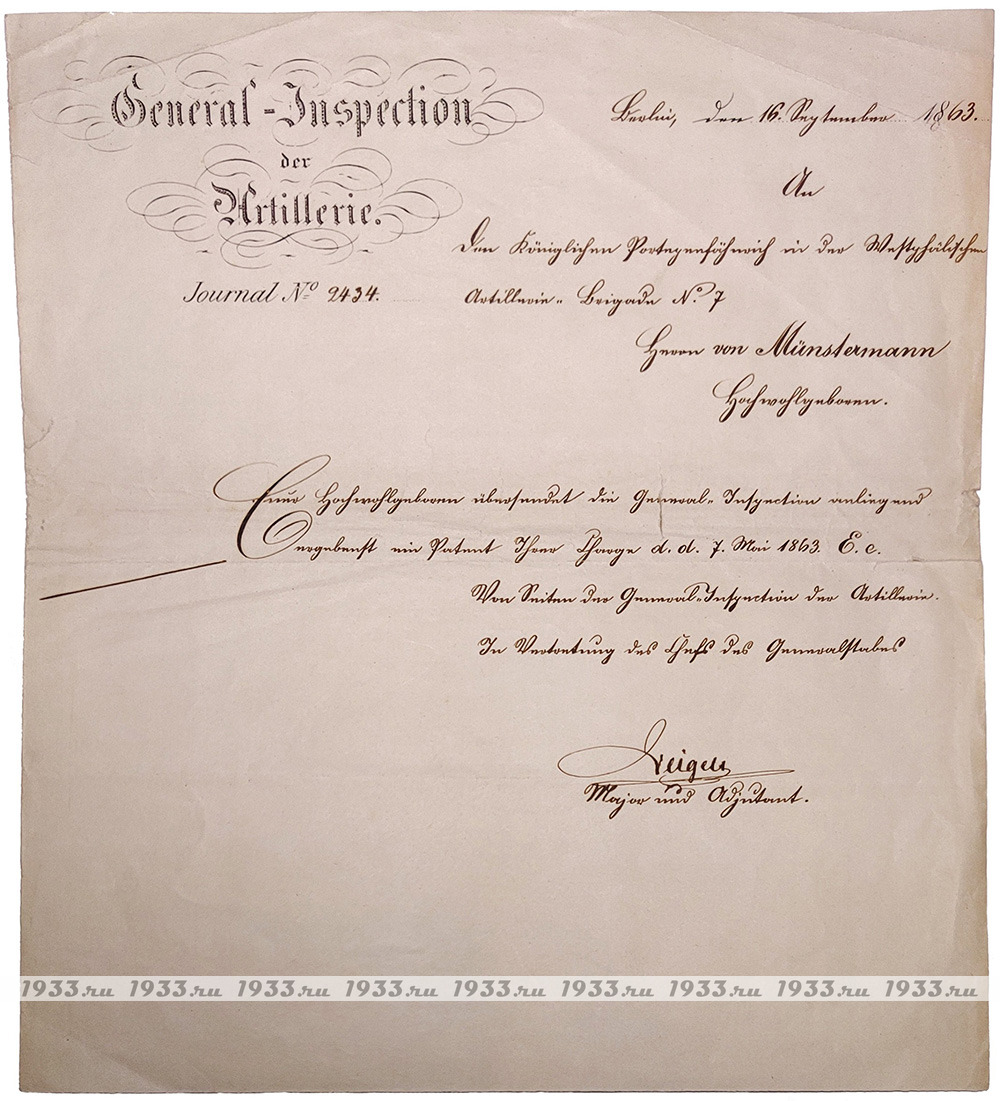 General-Inspection
der
Artillerie.
Journal No 2434.
Berlin, den 16. September 1863.
An
Den Königlichen Portepeefähnrich in der Westphälischen
Artillerie-Brigade No. 7
Herrn von Münstermann
Hochwohlgeboren.
Euer Hochwohlgeboren übersendet die General-Inspection anliegend
ergebenst ein Patent Ihrer Charge d. d. 7. Mai 1863. E. c.
Von Seiten der General-Inspection der Artillerie.
In Vertretung des Chefs des Generalstabes
Major und Adjutant.
1933.ru 1933.ru 1933.ru 1933.ru 1933.ru 1933.ru 1933.ru 1933.ru 1933.ru